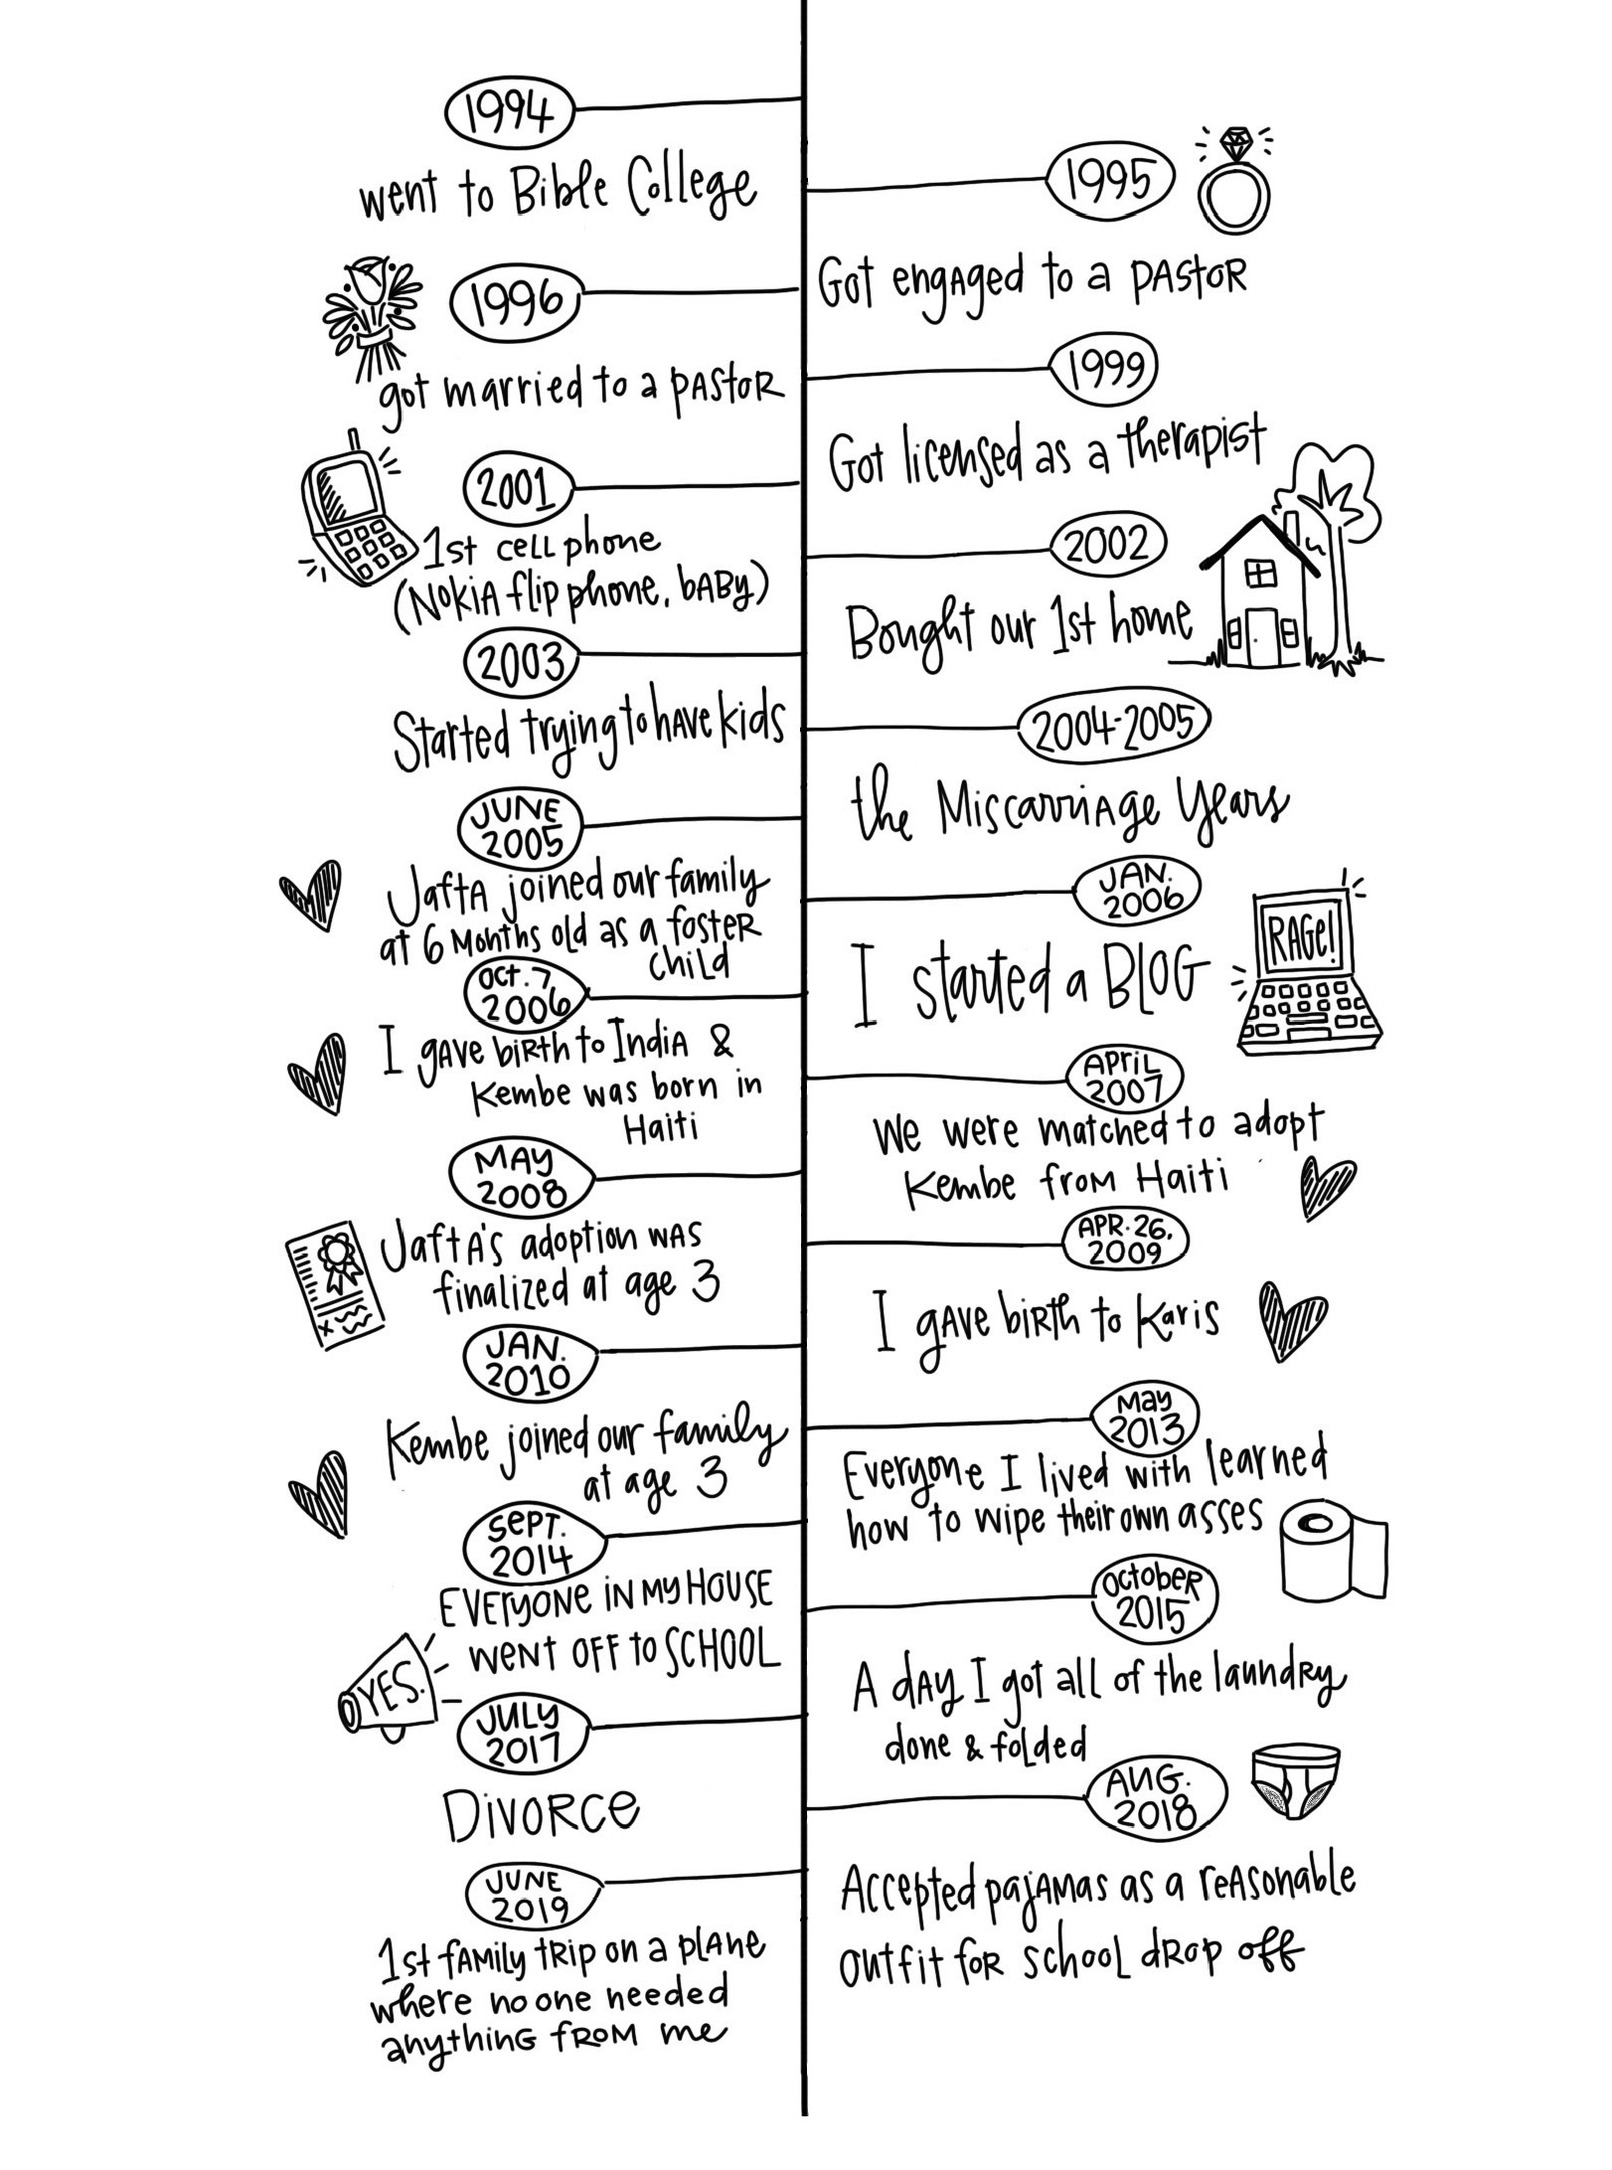 1994
went to Bible College
1995
Got engaged to a pastor
1996
got married to a pastor
1999
Got licensed as a therapist
2001
1st cell phone
(Nokia flip phone, baby)
2002
Bought our 1st home
2003
Started trying to have kids
2004-2005
the Miscarriage Years
JUNE
2005
Jafta joined our family
at 6 Months old as a foster
child
JAN.
2006
I started a BLOG
RAGe!
Oct. 7,
2006
I gave birth to India &
Kembe was born in
Haiti
April
2007
We were matched to adopt
Kembe from Haiti
MAY
2008
Jafta's adoption was
finalized at age 3
APR. 26,
2009
I gave birth to Karis
JAN.
2010
Kembe joined our family
at age 3
May
2013
Everyone I lived with learned
how to wipe their own asses
Sept.
2014
EVERYONE IN MY HOUSE
WENT OFF TO SCHOOL
YES.
October
2015
A day I got all of the laundry
done & folded
JULY
2017
Divorce
AUG.
2018
Accepted pajamas as a reasonable
outfit for school drop off
JUNE
2019
1st family trip on a plane
where no one needed
anything from me